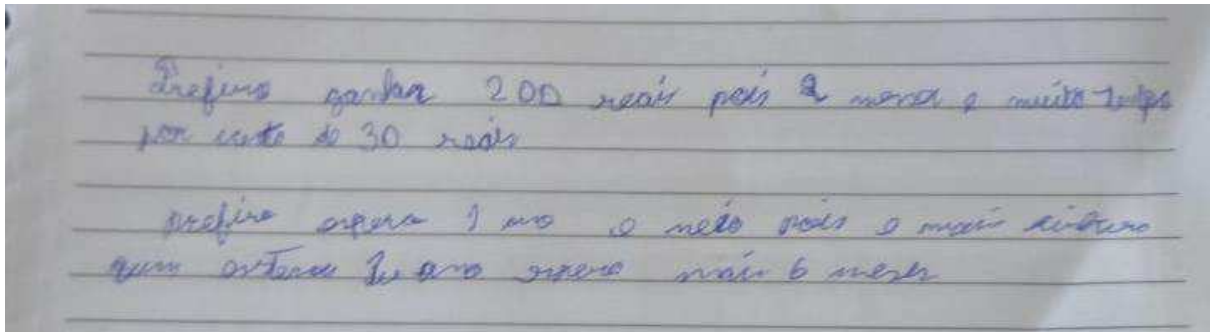 Prefiro ganhar 200 reais pois 2 meses e muito tempo
por causa de 30 reais
prefiro espera 1 ano e meio pois e mais dinheiro
quem espera 1 ano espera mais 6 meses